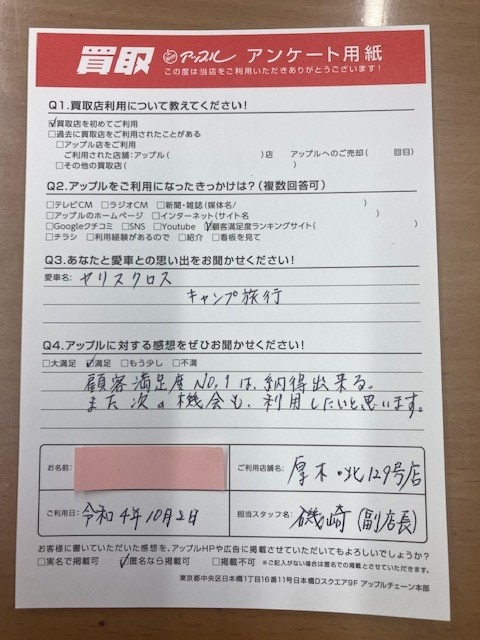 買取 アップル アンケート用紙
この度は当店をご利用いただきありがとうございます!
Q1.買取店利用について教えてください!
☑買取店を初めてご利用
□過去に買取店をご利用されたことがある
□アップル店をご利用
ご利用された店舗:アップル( )店 アップルへのご売却( 回目)
□その他の買取店( )
Q2.アップルをご利用になったきっかけは?(複数回答可)
□テレビCM □ラジオCM □新聞・雑誌(媒体名/ )
□アップルのホームページ □インターネット(サイト名 )
□Googleクチコミ □SNS □Youtube ☑顧客満足度ランキングサイト( )
□チラシ □利用経験があるので □紹介 □看板を見て
Q3.あなたと愛車との思い出をお聞かせください!
愛車名: ヤリスクロス
キャンプ旅行
Q4.アップルに対する感想をぜひお聞かせください!
□大満足 ☑満足 □もう少し □不満
顧客満足度NO,1は、納得出来る。
また次の機会も、利用したいと思います。
お名前: ご利用店舗名: 厚木・北129号店
ご利用日: 令和4年10月2日 担当スタッフ名: 磯崎(副店長)
お客様に書いていただいた感想を、アップルHPや広告に掲載させていただいてもよろしいでしょうか?
□実名で掲載可 ☑匿名なら掲載可 □掲載不可 ※ご記入がない場合は匿名での掲載とさせていただきます。
東京都中央区日本橋1丁目16番11号日本橋Dスクエア9F アップルチェーン本部